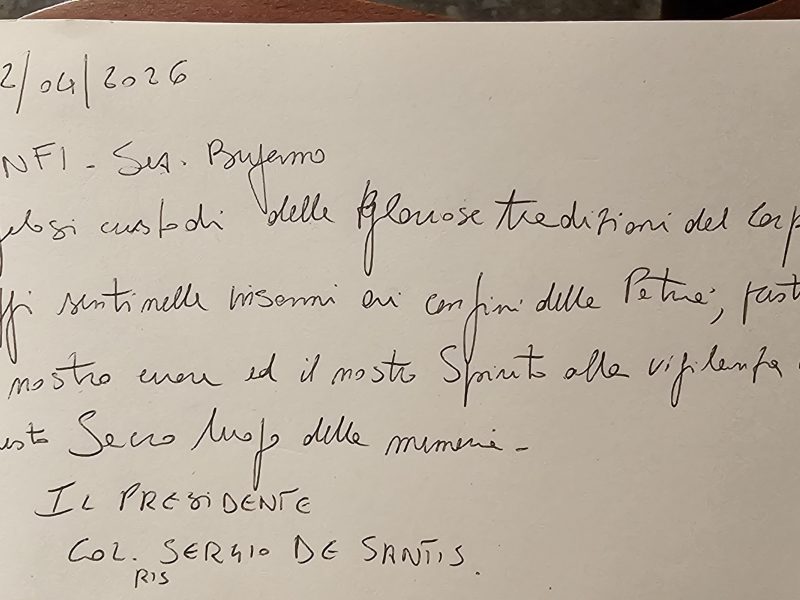 2/04/2026
NFI - Sez. Bujanno
gelosi custodi delle gloriose tradizioni del Corp
ffi sentinelle insonni ai confini della Patria, fast
nostro cuore ed il nostro Spirito alla vigilanza
uesto Sacro luogo della memoria.
IL PRESIDENTE
COL. SERGIO DE SANTIS.
RIS